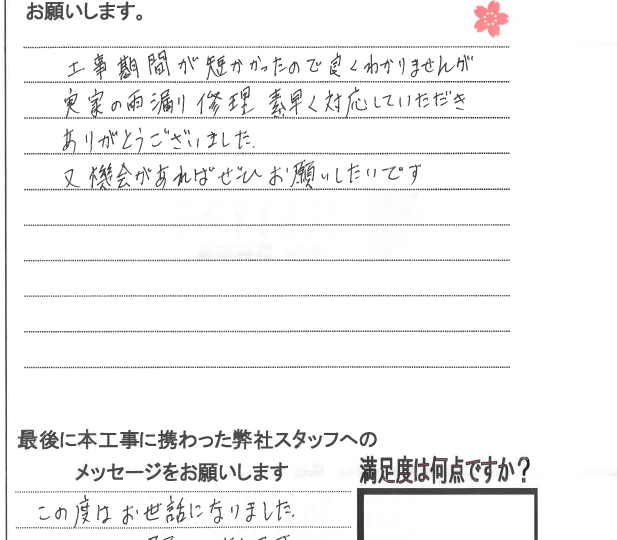 お願いします。
工事期間が短かかったので良くわかりませんが
実家の雨漏り修理 素早く対応していただき
ありがとうございました。
又機会があればぜひお願いしたいです
最後に本工事に携わった弊社スタッフへの
メッセージをお願いします
満足度は何点ですか?
この度はお世話になりました。